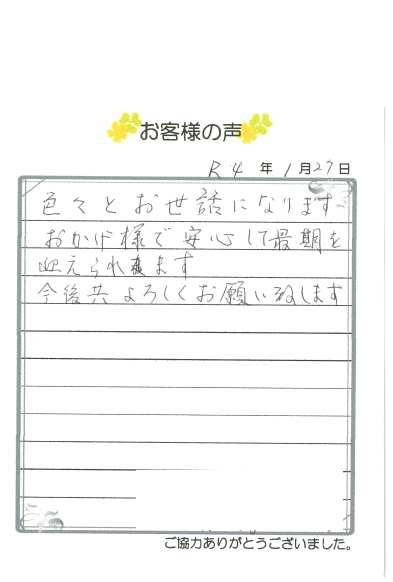 お客様の声
R4年1月27日
色々とお世話になります
おかげ様で安心して最期を
迎えられます
今後共よろしくお願い致します
ご協力ありがとうございました。